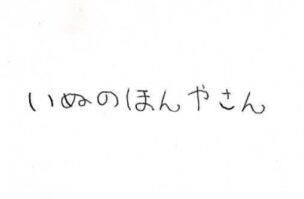 いぬのほんやさん